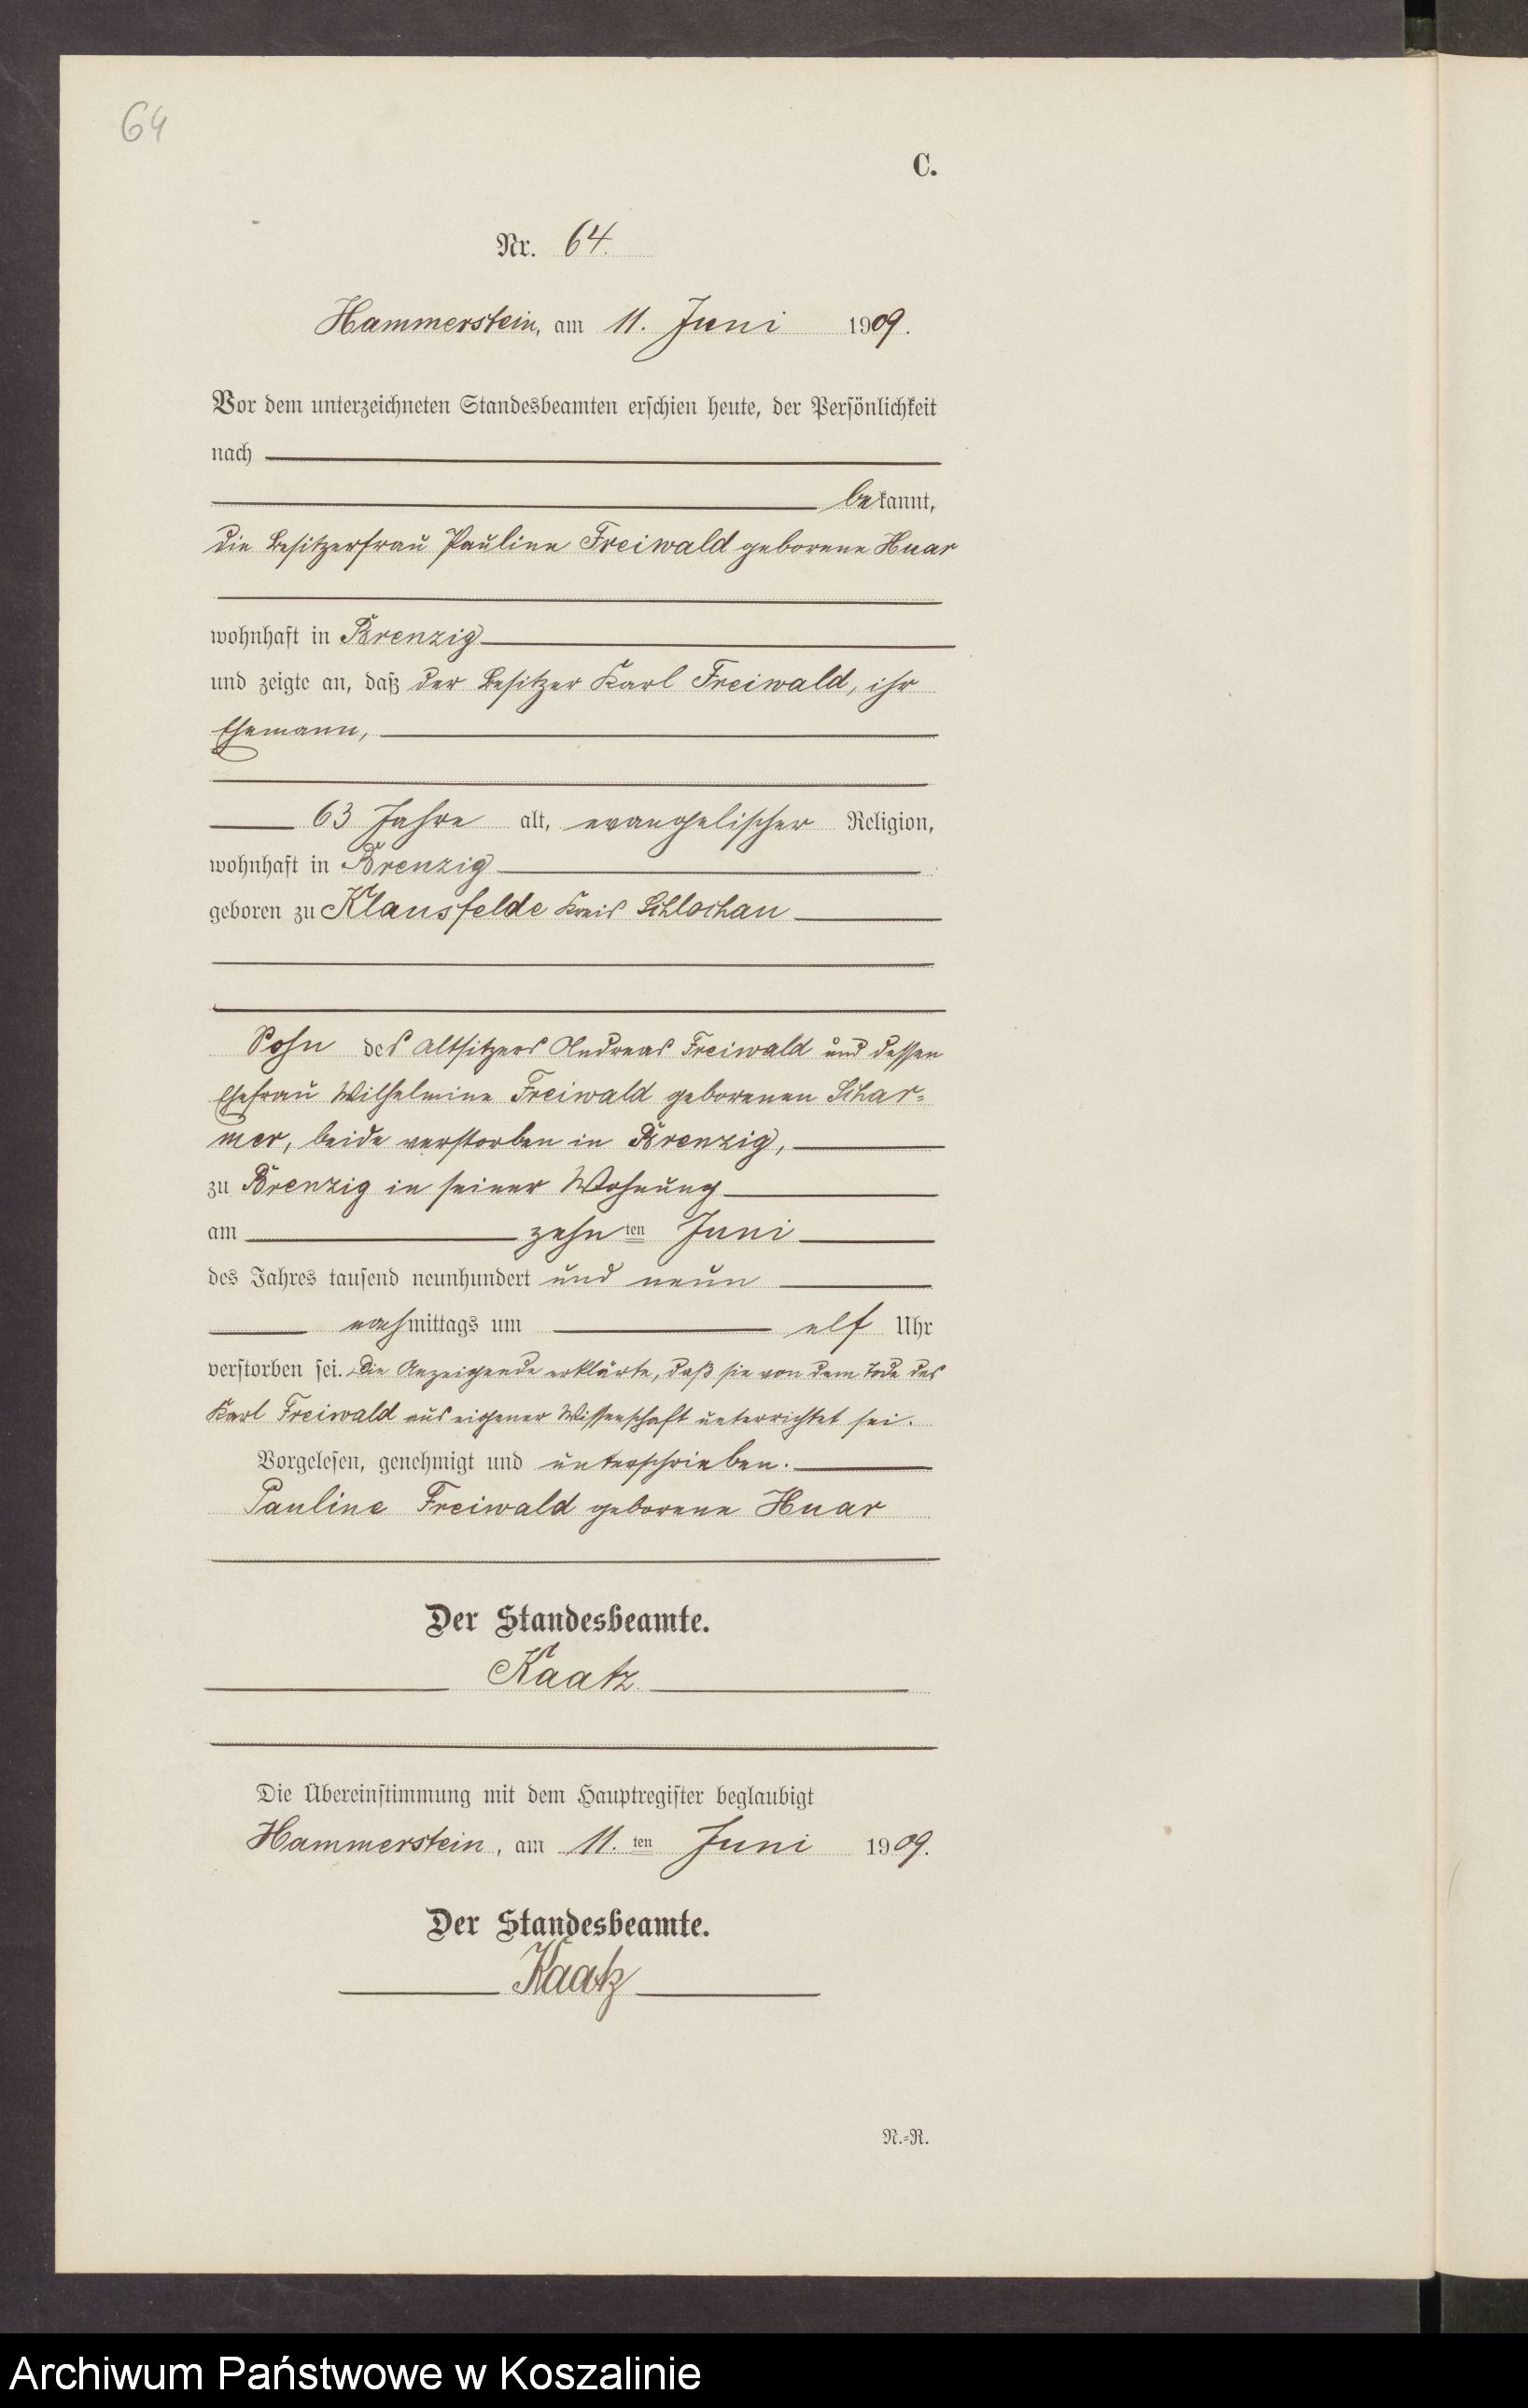 64
C.
Nr. 64.
Hammerstein, am 11. Juni 1909.
Vor dem unterzeichneten Standesbeamten erschien heute, der Persönlichkeit
nach
bekannt,
die Besitzerfrau Pauline Freiwald geborene Huar
wohnhaft in Brenzig
und zeigte an, daß der Besitzer Karl Freiwald, ihr
Ehemann,
63 Jahre alt, evangelischer Religion,
wohnhaft in Brenzig
geboren zu Klausfelde Kreis Schlochau
Sohn des Altsitzers Andreas Freiwald und dessen
Ehefrau Wilhelmine Freiwald geborenen Schar-
mer, beide verstorben in Brenzig,
zu Brenzig in seiner Wohnung
am zehn ten Juni
des Jahres tausend neunhundert und neun
nachmittags um elf Uhr
verstorben sei. Die Anzeigende erklärte, daß sie von dem Tode des
Karl Freiwald aus eigener Wissenschaft unterrichtet sei.
Vorgelesen, genehmigt und unterschrieben.
Pauline Freiwald geborene Huar
Der Standesbeamte.
Kaatz
Die Übereinstimmung mit dem Hauptregister beglaubigt
Hammerstein, am 11. ten Juni 1909.
Der Standesbeamte.
Kaatz
N.-R.
Archiwum Państwowe w Koszalinie